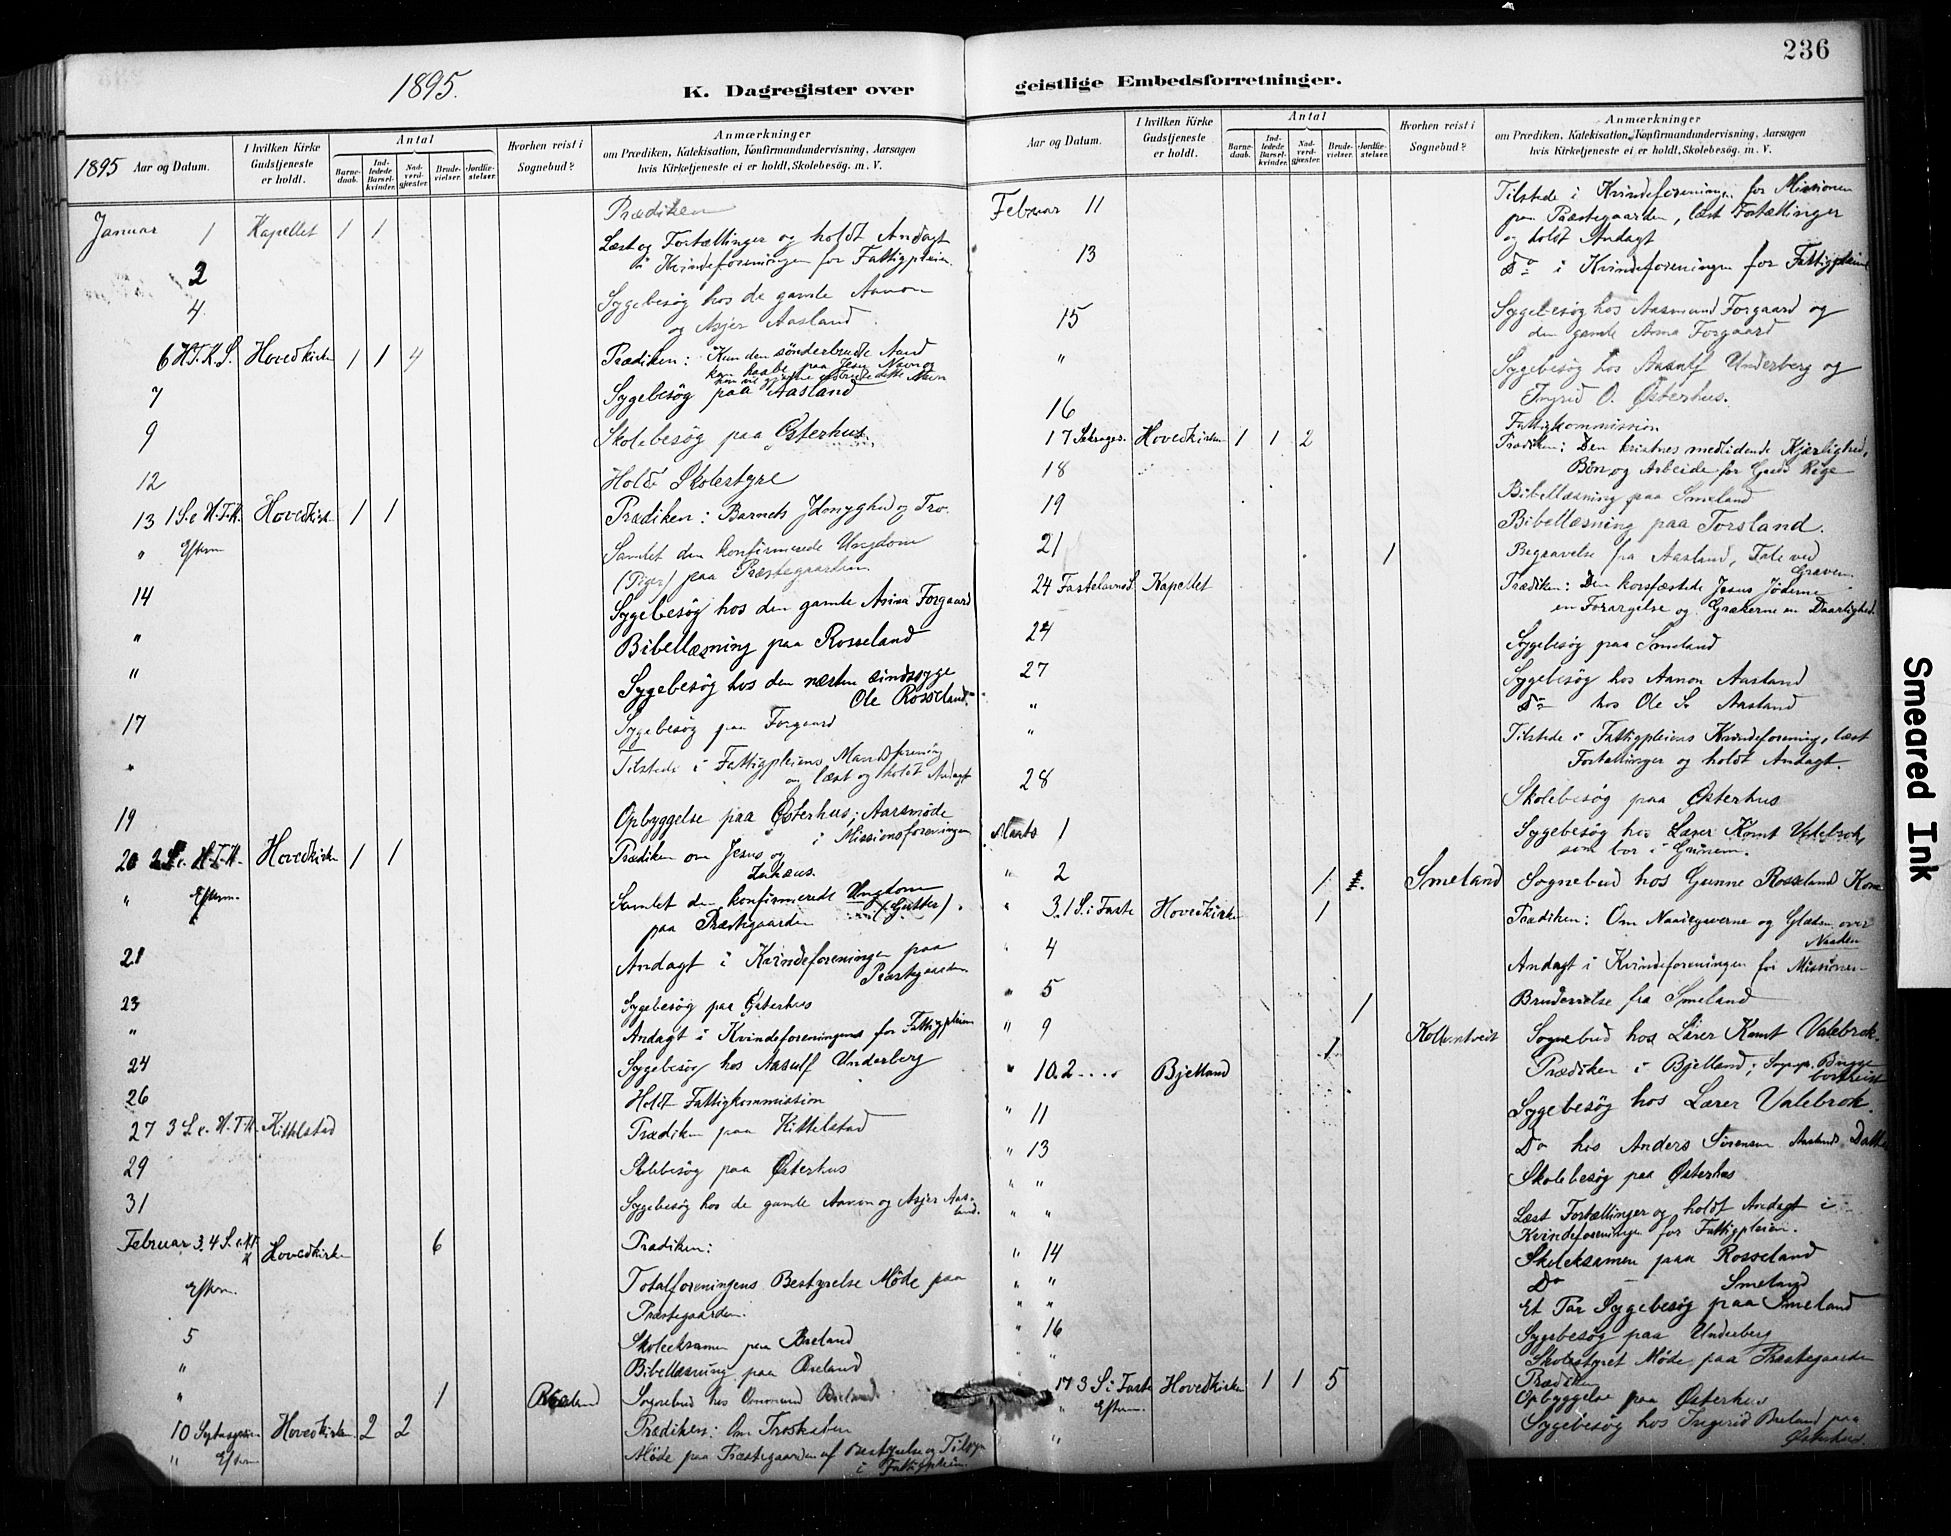 236
1895.
K. Dagregister over
1895 Aar og Datum.
I hvilken Kirke Gudstjeneste er holdt.
Antal
Barnedaab.
Indledede Barselkvinder.
Nadverdgjæster
Brudevielser.
Jordfæstelser.
Hvorhen reist i Sognebud?
Anmærkninger
om Prædiken, Katekisation, Konfirmandundervisning, Aarsagen
hvis Kirketjeneste ei er holdt, Skolebesøg. m. V.
Januar 1 Kapellet 1 1 Prædiken
2 Læst og Fortællinger og holdt Andagt
i Kvindeforeningen for Fattigpleien.
4. Sygebesøg hos de gamle Aanon
og Asjer Aasland
6 H.T.K.S. Hovedkirken 1 1 4 Prædiken: Kun den sønderbrudte Aand
kan haabe paa Jesu Navn og
7 Sygebesøg paa Aasland
9 Skolebesøg paa Østerhus.
12 Holdt Skolestyre
13 1 S. e. H.T.K. Hovedkirk. 1 1 Prædiken: Barnets Ydmyghed og Tro.
" Efterm Samlet den konfirmerede Ungdom
(Piger) paa Præstegaarden.
14 Sygebesøg hos den gamle Anna Forgaard
" Bibellæsning paa Rosseland
" Sygebesøg hos den næsten sindssyge
Ole Rosseland.
17 Sygebesøg paa Forgaard
" Tilstede i Fattigpleiens Mandsforening
og læst og holdt Andagt
19 Opbyggelse paa Østerhus; Aarsmøde
i Missionsforeningen
20 2 S. e. H.T.K. Hovedkirken 1 1 Prædiken om Jesus og
Zakæus.
" Efterm. Samlet den konfirmerede Ungdom
paa Præstegaarden (Gutter).
21 Andagt i Kvindeforeningen paa
Præstegaarden
23 Sygebesøg paa Østerhus
" Andagt i Kvindeforeningens for Fattigpleien
24 Sygebesøg hos Aasulf Underberg
26 Holdt Fattigkommission
27 3 S. e. H.T.K. Kittelstad Prædiken paa Kittelstad
29 Skolebesøg paa Østerhus
31 Sygebesøg hos de gamle Aanon og Asjer Aasland.
Februar 3. 4 S. e. H.T.K Hovedkirken 6 Prædiken:
Efterm. Totalforeningens Bestyrelse Møde paa
Præstegaarden.
5 Skoleeksamen paa Breland
" Bibellæsning paa Breland
" 1 Breland Sognebud hos Breland
10 Hovedkirken 2 2 Prædiken: Om Troskaben
" Efterm Møde paa Præstegaarden af Bestyrelse og Tilsyn
i Fattigpleien.
geistlige Embedsforretninger.
Aar og Datum.
I hvilken Kirke Gudstjeneste er holdt.
Antal
Barnedaab.
Indledede Barselkvinder.
Nadverdgjæster.
Brudevielser.
Jordfæstelser.
Hvorhen reist i Sognebud?
Anmærkninger
om Prædiken, Katekisation, Konfirmandundervisning, Aarsagen
hvis Kirketjeneste ei er holdt, Skolebesøg. m. V.
Februar 11 Tilstede i Kvindeforeningen for Missionen
paa Præstegaarden, læst Fortællinger
og holdt Andagt
13 Do i Kvindeforeningen for Fattigpleien
15 Sygebesøg hos Aasmund Forgaard og
den gamle Anna Forgaard
" Sygebesøg hos Aasulf Underberg og
Ingrid O. Østerhus.
16 Fattigkommission
17 Hovedkirken 1 1 2 Prædiken: Den kristnes medlidende Kjærlighed,
Bøn og Arbeide for Guds Rige
18 Bibellæsning paa Smeland
19 Bibellæsning paa Torsland.
21 1 Begravelse fra Aasland, Tale ved
Graven.
24 Fastelavns S. Kapellet Prædiken: Den korsfæstede Jesus Jøderne
en Forargelse og Grækerne en Daarlighed.
24 Sygebesøg paa Smeland
27 Sygebesøg hos Aanon Aasland
" Do hos Ole S. Aasland
" Tilstede i Fattigpleiens Kvindeforening, læst
Fortællinger og holdt Andagt.
28 Skolebesøg paa Østerhus
Marts 1 Sygebesøg hos Lærer Kornt Valebrok,
som bor i Grunem.
" 2 1 Smeland Sognebud hos Gunne Rosseland Kone
" 3. 1 S. i Faste Hovedkirken 1 Prædiken: Om Naadegaverne og Glæden over
Naaden
" 4 Andagt i Kvindeforeningen for Missionen
" 5 1 Brudevielse fra Smeland
" 9 1 Sognebud hos Lærer Kornt Valebrok.
" 10. 2 .... Bjelland Prædiken i Bjelland; Sogspr. Bugge
bortreist
" 11 Sygebesøg hos Lærer Valebrok.
" 13 Do hos Anders Sørensen Aaslands Datter
" " Skolebesøg paa Østerhus
" " Læst Fortællinger og holdt Andagt i
Kvindeforeningen for Fattigpleien.
" 14 Skoleeksamen paa Rosseland
" " Do Smeland
" " Et Par Sygebesøg paa Smeland
" 16 Sygebesøg paa Underberg
" " Skolestyret Møde paa Præstegaarden
17 3 S i Faste Hovedkirken 1 1 5 Prædiken
" Efterm. Opbyggelse paa Østerhus
" Sygebesøg hos Ingerid Breland paa
Østerhus.
Smeared Ink